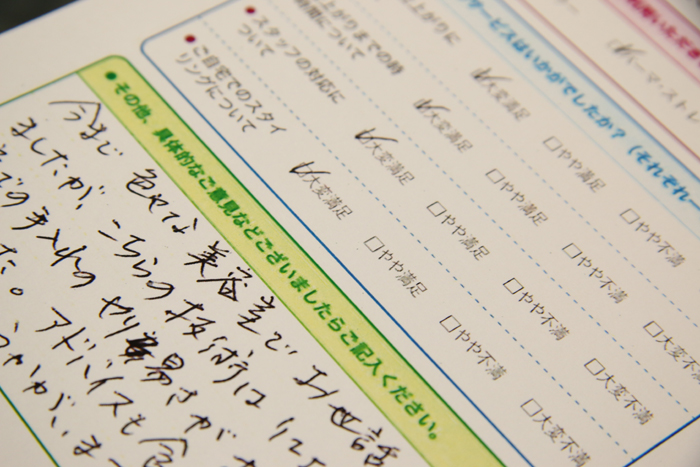 サービスはいかがでしたか？（それぞれ
上がりに
☑大変満足
□やや満足
□やや不満
上がりまでの時
間について
☑大変満足
□やや満足
□やや不満
□大変不満
●スタッフの対応に
ついて
☑大変満足
□やや満足
□やや不満
□大変不満
●ご自宅でのスタイ
リングについて
☑大変満足
□やや満足
□やや不満
□大変不満
●その他、具体的なご意見などございましたらご記入ください。
今まで 色々な 美容室で お世話
ましたが、こちらの技術は
での手入れの やり易さが
た。 アドバイスも 含